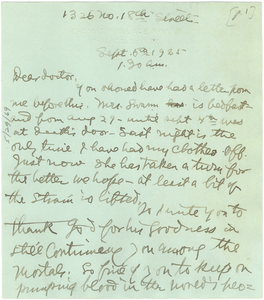 1326 No. 18th Street
Sept. 5th 1925
1:30 am.
Dear Doctor:
You should have had a letter from
me before this. Mrs. Swann is bedfast
and from Aug 27 - until Sept 4th was
at death's door. Last night is the
only time I have had my clothes off.
Just now she has taken a turn for
the better we hope - at least a bit of
the strain is lifted.
I write you to
thank God for his goodness in
still continuing you among the
mortals: to pray you to keep on
pumping blood in the world's peo-